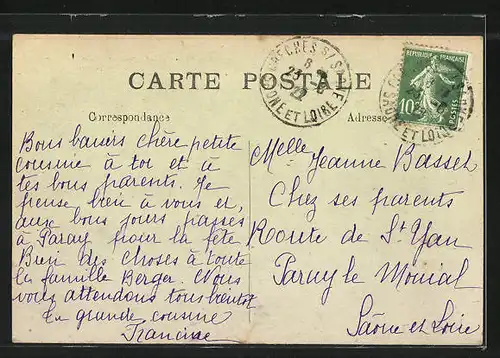 CARTE POSTALE
Correspondance
Adresse
RÉPUBLIQUE FRANÇAISE
10c
POSTES
SAONE ET LOIRE
Bons baisers chère petite
cousine à toi et à
tes bons parents. Je
pense bien à vous et
aux bons jours passés
à Paray pour la fête
Bien des choses à toute
la famille Berger. Nous
vous attendons tous bientôt
Ta grande cousine
Francine
Melle Jeanne Basset
Chez ses parents
Route de St Yan
Paray le Monial
Saône et Loire